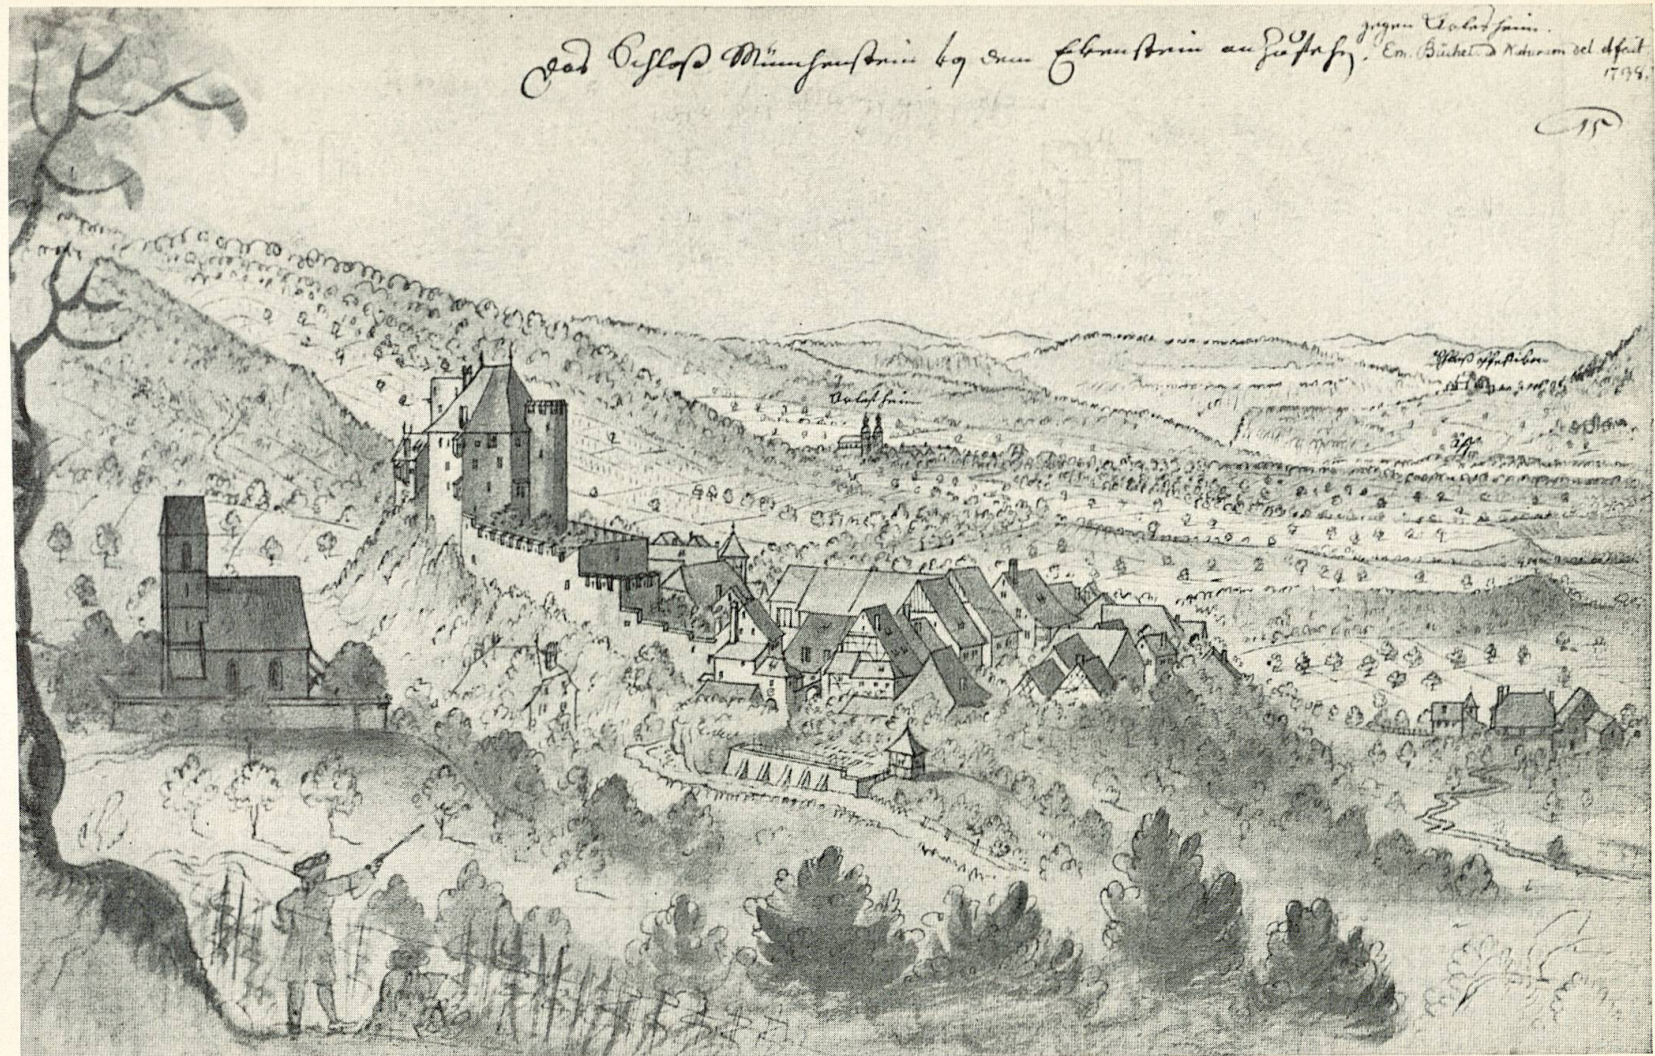 Das Schloß Münchenstein bey dem Ebenstein an zu sehen.
gegen Arlesheim.
Em. Büchel ad Naturam del. et fecit
1738.
15
Arlesheim